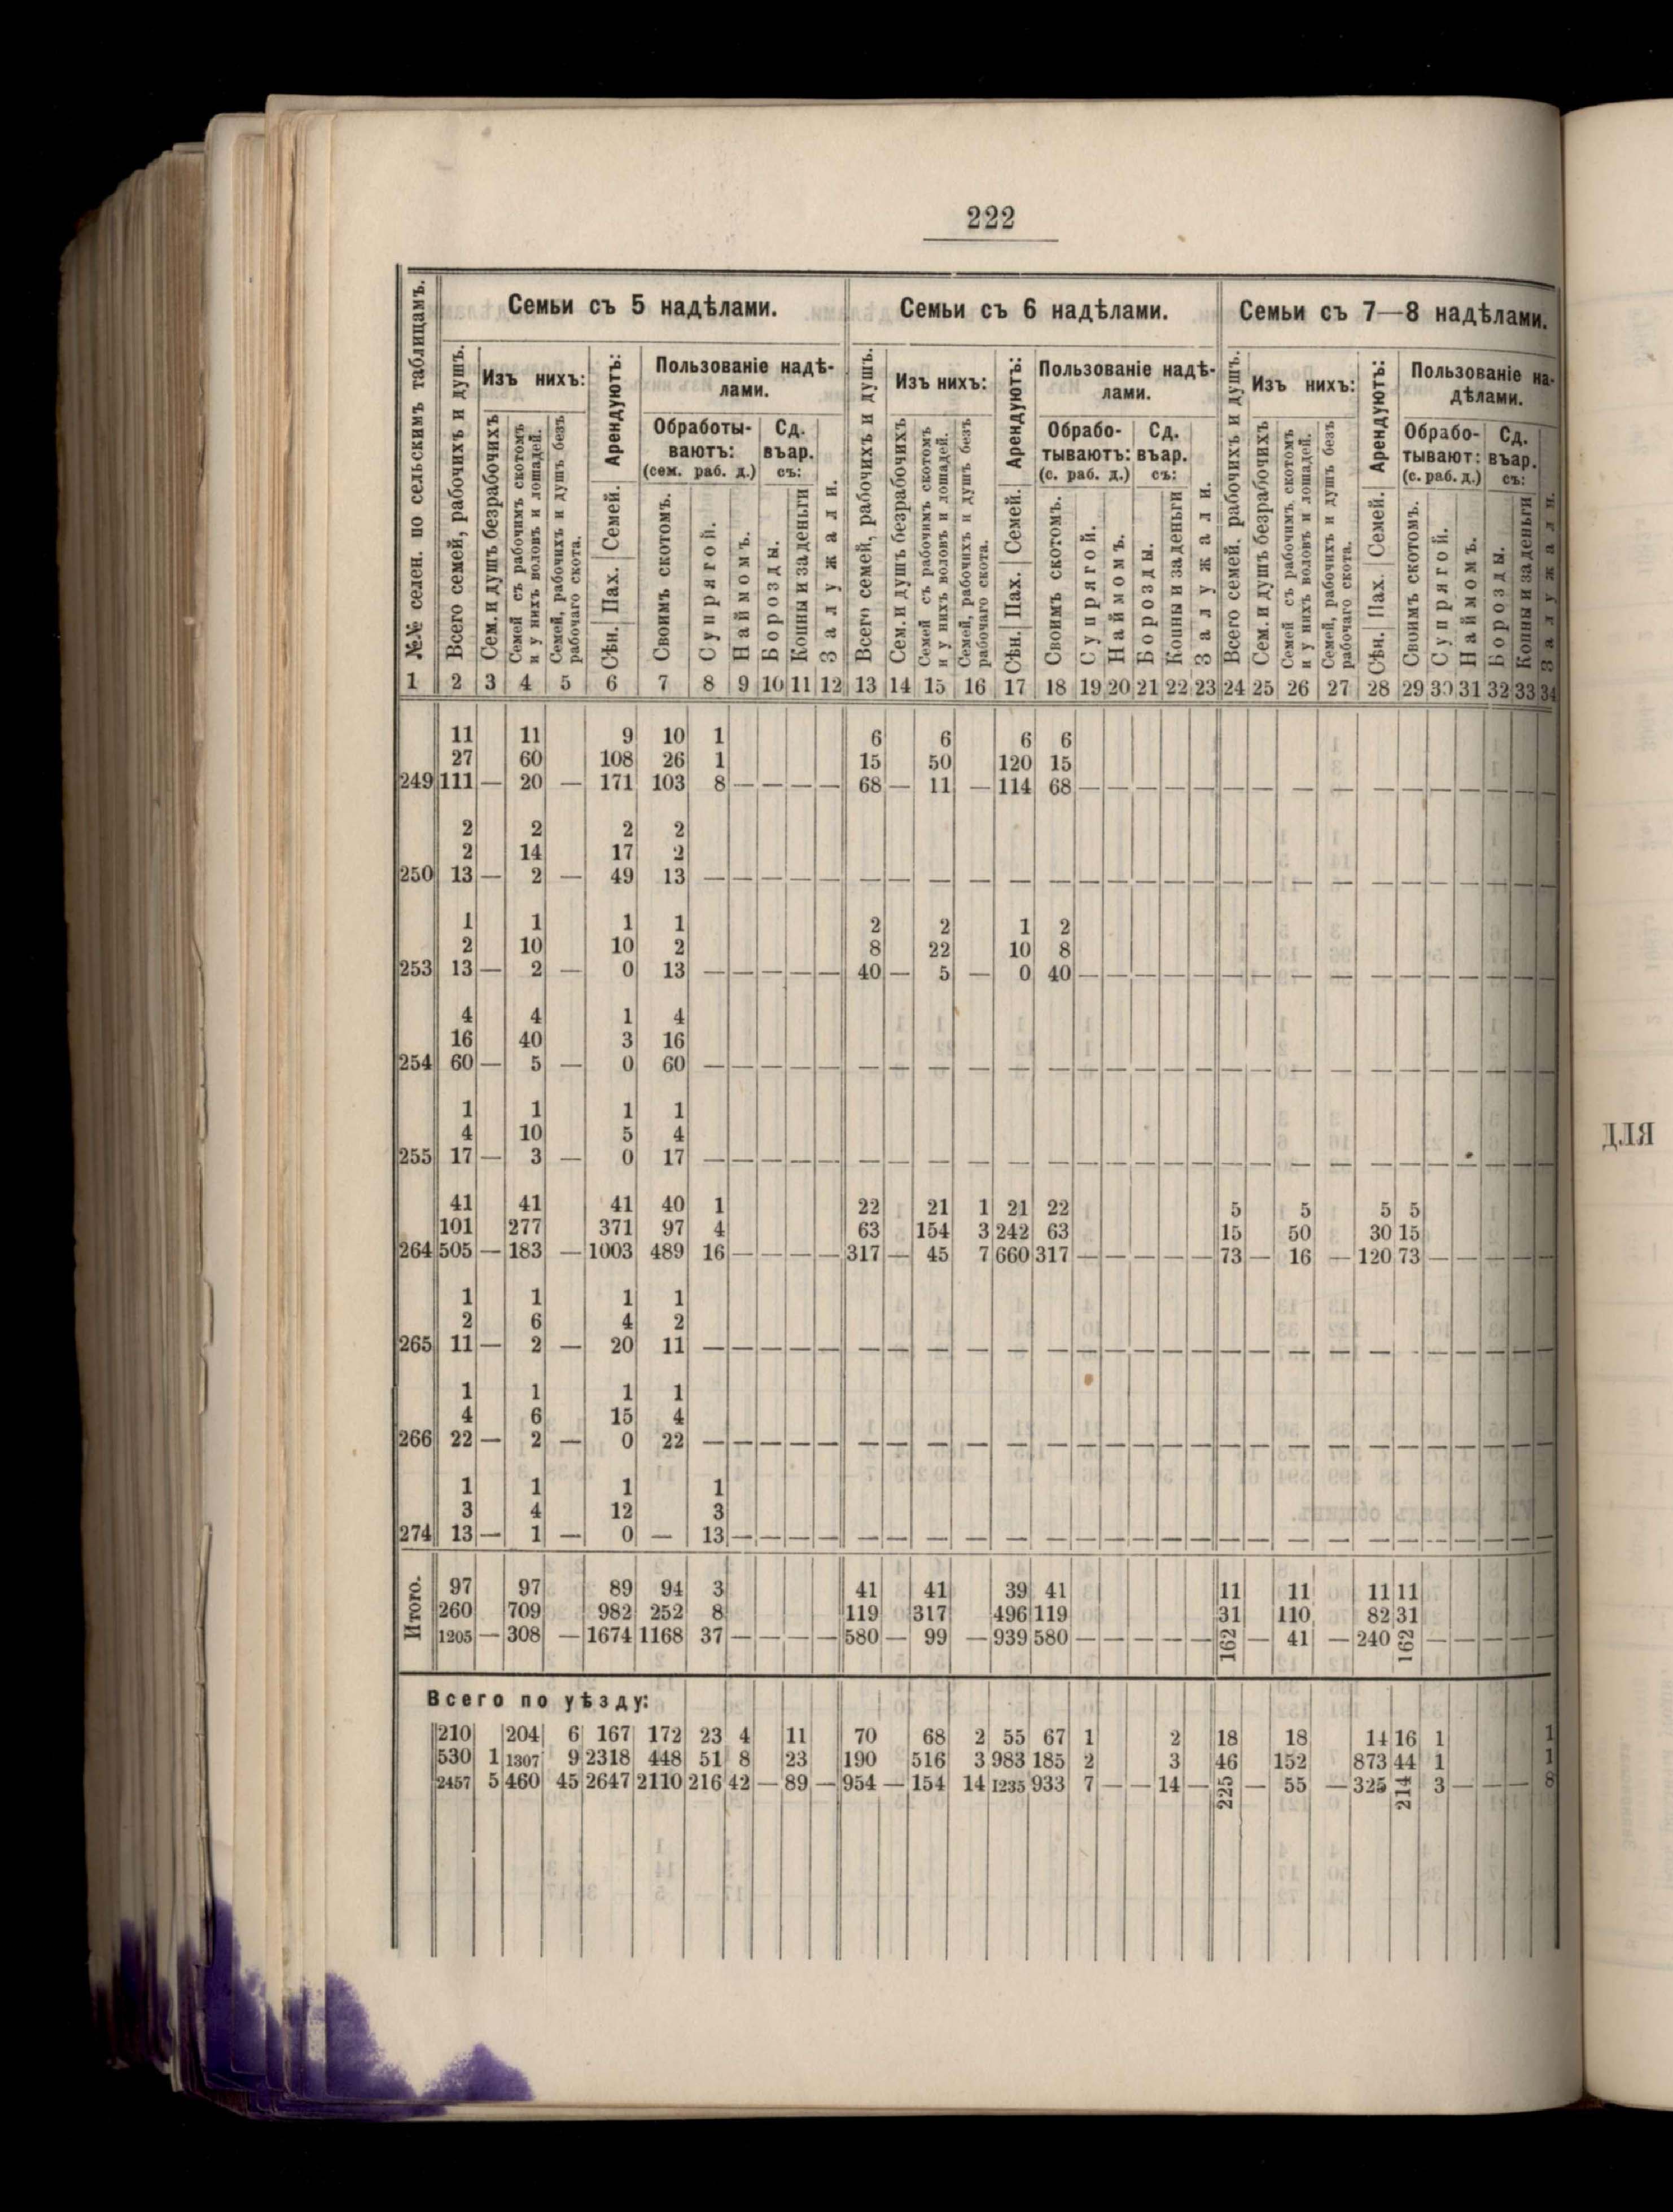 222
Семьи съ 5 надѣлами. Семьи съ 6 надѣлами. Семьи съ 7—8 надѣлами.
№№ селен. по сельскимъ таблицамъ.
Всего семей, рабочихъ и душъ.
Изъ нихъ:
Сем. и душъ безрабочихъ
Семей съ рабочимъ скотомъ и у нихъ воловъ и лошадей.
Семей, рабочихъ и душъ безъ рабочаго скота.
Арендуютъ:
Сѣн. Пах. Семей.
Пользованіе надѣ-
лами.
Обработы-
ваютъ:
(сем. раб. д.)
Сд.
въ ар.
съ:
Своимъ скотомъ.
Супрягой.
Наймомъ.
Борозды.
Копны и за деньги
Залужали.
Всего семей, рабочихъ и душъ.
Изъ нихъ:
Сем. и душъ безрабочихъ
Семей съ рабочимъ скотомъ и у нихъ воловъ и лошадей.
Семей, рабочихъ и душъ безъ рабочаго скота.
Арендуютъ:
Сѣн. Пах. Семей.
Пользованіе надѣ-
лами.
Обрабо-
тываютъ:
(с. раб. д.)
Сд.
въ ар.
съ:
Своимъ скотомъ.
Супрягой.
Наймомъ.
Борозды.
Копны и за деньги
Залужали.
Всего семей, рабочихъ и душъ.
Изъ нихъ:
Сем. и душъ безрабочихъ
Семей съ рабочимъ скотомъ и у нихъ воловъ и лошадей.
Семей, рабочихъ и душъ безъ рабочаго скота.
Арендуютъ:
Сѣн. Пах. Семей.
Пользованіе на-
дѣлами.
Обрабо-
тывают:
(с. раб. д.)
Сд.
въ ар.
съ:
Своимъ скотомъ.
Супрягой.
Наймомъ.
Борозды.
Копны и за деньги
Залужали.
1 2 3 4 5 6 7 8 9 10 11 12 13 14 15 16 17 18 19 20 21 22 23 24 25 26 27 28 29 30 31 32 33 34
11 11 9 10 1 6 6 6 6
27 60 108 26 1 15 50 120 15
249 111 — 20 — 171 103 8 — — — — 68 — 11 — 114 68 — — — — — — — — — — — — — — — —
2 2 2 2
2 14 17 2
250 13 — 2 — 49 13 — — — — — — — — — — — — — — — — — — — — — — — — — — —
1 1 1 1 2 2 1 2
2 10 10 2 8 22 10 8
253 13 — 2 — 0 13 — — — — — 40 — 5 — 0 40 — — — — — — — — — — — — — — — —
4 4 1 4
16 40 3 16
254 60 — 5 — 0 60 — — — — — — — — — — — — — — — — — — — — — — — — — — —
1 1 1 1
4 10 5 4
255 17 — 3 — 0 17 — — — — — — — — — — — — — — — — — — — — — — — — — — —
41 41 41 40 1 22 21 1 21 22 5 5 5 5
101 277 371 97 4 63 154 3 242 63 15 50 30 15
264 505 — 183 — 1003 489 16 — — — — 317 — 45 7 660 317 — — — — — 73 — 16 — 120 73 — — — — —
1 1 1 1
2 6 4 2
265 11 — 2 — 20 11 — — — — — — — — — — — — — — — — — — — — — — — — — — —
1 1 1 1
4 6 15 4
266 22 — 2 — 0 22 — — — — — — — — — — — — — — — — — — — — — — — — — — —
1 1 1 1
3 4 12 3
274 13 — 1 — 0 — 13 — — — — — — — — — — — — — — — — — — — — — — — — — —
Итого.
97 97 89 94 3 41 41 39 41 11 11 11 11
260 709 982 252 8 119 317 496 119 31 110 82 31
1205 — 308 — 1674 1168 37 — — — — 580 — 99 — 939 580 — — — — — 162 — 41 — 240 162 — — — — —
Всего по уѣзду:
210 204 6 167 172 23 4 11 70 68 2 55 67 1 2 18 18 14 16 1 1
530 1 1307 9 2318 448 51 8 23 190 516 3 983 185 2 3 46 152 873 44 1 1
2457 5 460 45 2647 2110 216 42 — 89 — 954 — 154 14 1235 933 7 — — 14 — 225 — 55 — 325 214 3 — — — 8
для